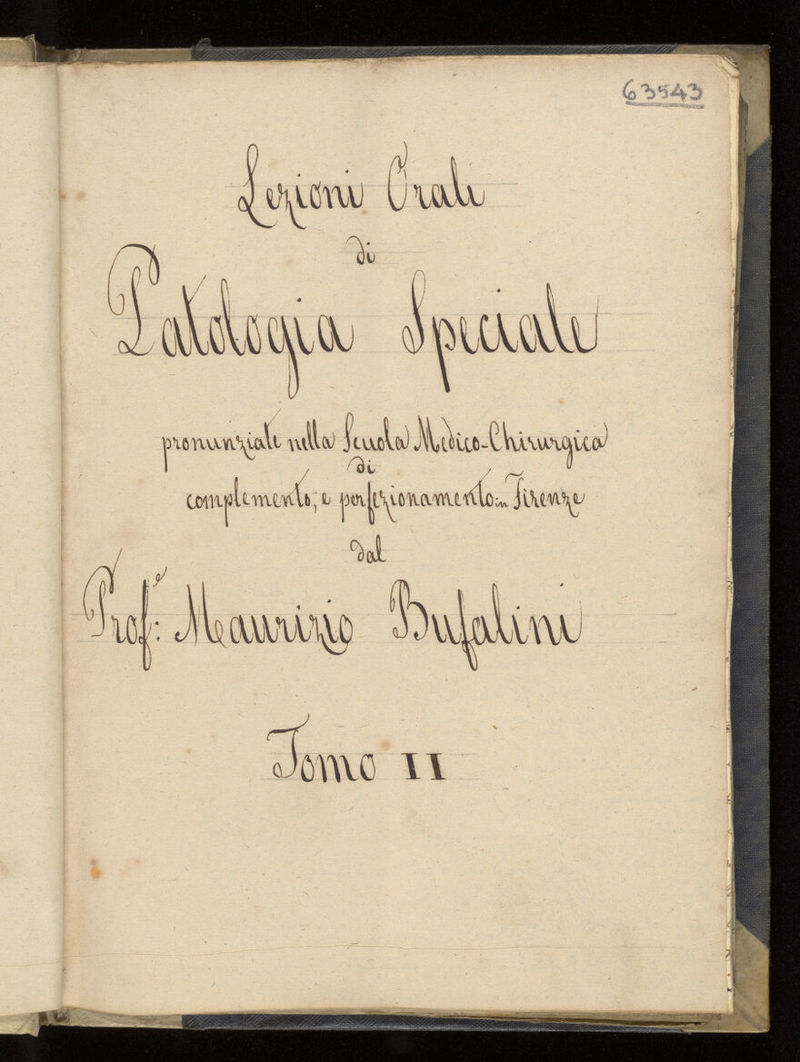 63543
Lezioni Orali
di
Patologia Speciale
pronunziate nella Scuola Medico-Chirurgica
di
complemento, e perfezionamento in Firenze
dal
Prof:e Maurizio Bufalini
Tomo II